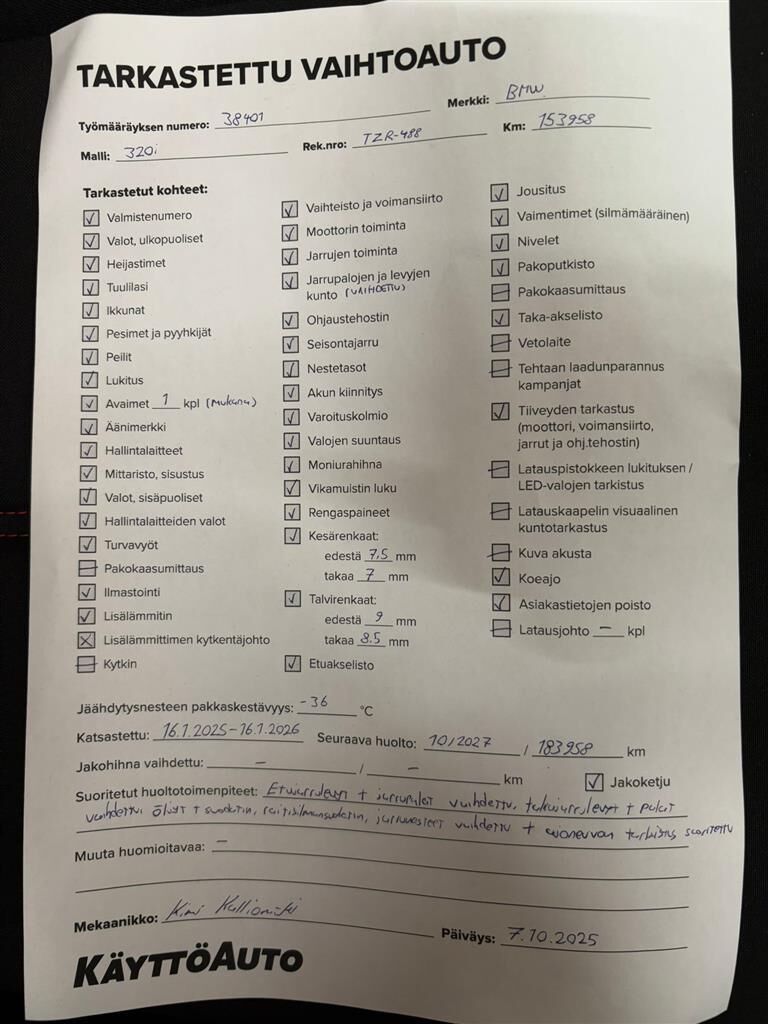 TARKASTETTU VAIHTOAUTO
Työmääräyksen numero: 38401 Merkki: BMW
Malli: 320i Rek.nro: TZR-488 Km: 153958
Tarkastetut kohteet:
Valmistenumero
Valot, ulkopuoliset
Heijastimet
Tuulilasi
Ikkunat
Pesimet ja pyyhkijät
Peilit
Lukitus
Avaimet 1 kpl (Mukana)
Äänimerkki
Hallintalaitteet
Mittaristo, sisustus
Valot, sisäpuoliset
Hallintalaitteiden valot
Turvavyöt
Pakokaasumittaus
Ilmastointi
Lisälämmitin
Lisälämmittimen kytkentäjohto
Kytkin
Vaihteisto ja voimansiirto
Moottorin toiminta
Jarrujen toiminta
Jarrupalojen ja levyjen
kunto (VAIHDETTU)
Ohjaustehostin
Seisontajarru
Nestetasot
Akun kiinnitys
Varoituskolmio
Valojen suuntaus
Moniurahihna
Vikamuistin luku
Rengaspaineet
Kesärenkaat:
edestä 7,5 mm
takaa 7 mm
Talvirenkaat:
edestä 9 mm
takaa 8.5 mm
Etuakselisto
Jousitus
Vaimentimet (silmämääräinen)
Nivelet
Pakoputkisto
Pakokaasumittaus
Taka-akselisto
Vetolaite
Tehtaan laadunparannus
kampanjat
Tiiveyden tarkastus
(moottori, voimansiirto,
jarrut ja ohj.tehostin)
Latauspistokkeen lukituksen /
LED-valojen tarkistus
Latauskaapelin visuaalinen
kuntotarkastus
Kuva akusta
Koeajo
Asiakastietojen poisto
Latausjohto – kpl
Jäähdytysnesteen pakkaskestävyys: -36 °C
Katsastettu: 16.1.2025-16.1.2026 Seuraava huolto: 10/2027 / 183958 km
Jakohihna vaihdettu: – / – km Jakoketju
Suoritetut huoltotoimenpiteet: Etujarrulevyt + jarrupalat vaihdettu, takajarrulevyt + palat
vaihdettu. Öljyt + suodatin, raitisilmansuodatin, jarrunesteet vaihdettu + ajoneuvon tarkistus suoritettu
Muuta huomioitavaa: –
Mekaanikko: Kimi Päiväys: 7.10.2025
KÄYTTÖAUTO